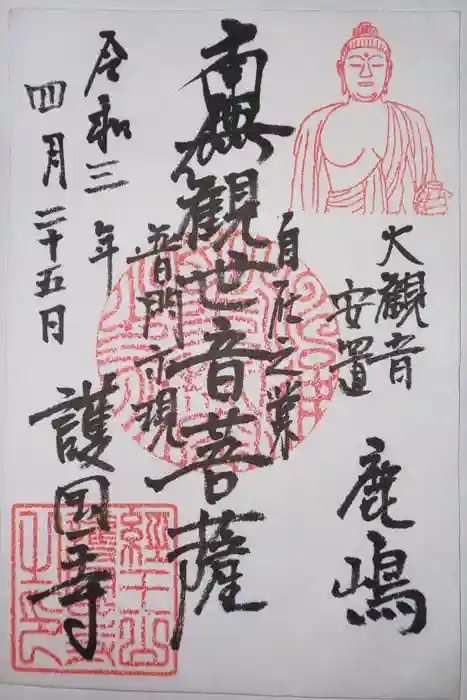 大観音
安置
鹿嶋
自在之業
南無観世音菩薩
普門示現
令和三年
四月二十五日
護国寺